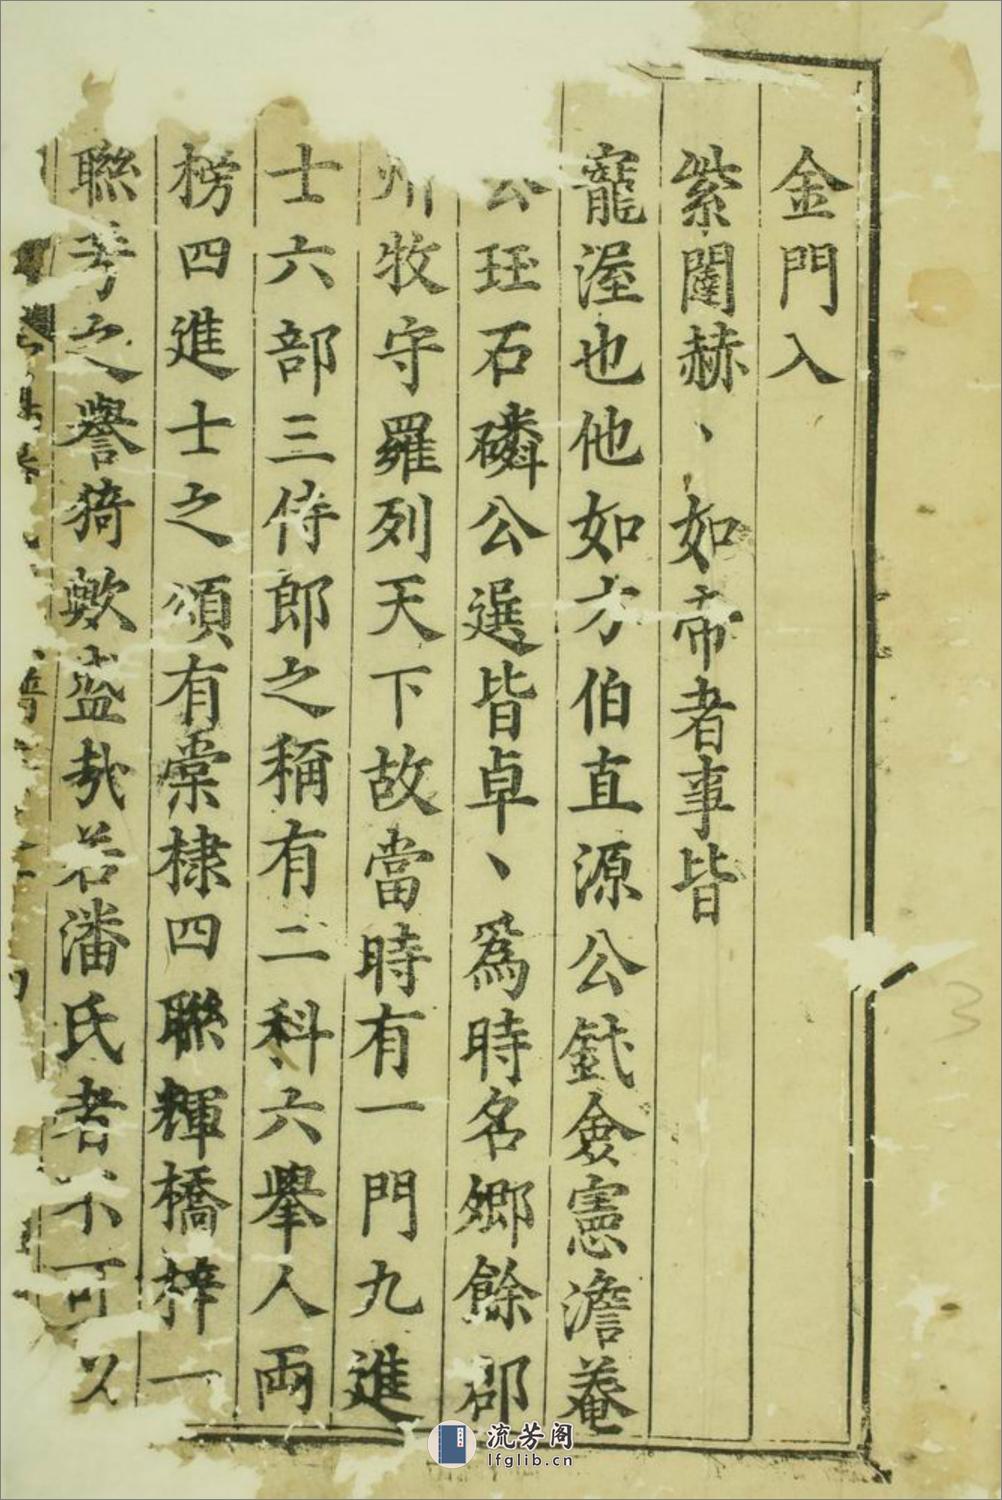 金門入
紫闥赫、如帝者事皆
寵渥也他如方伯直源公鉞僉憲澹菴
公珏石磷公選皆卓、爲時名鄉餘郡
州牧守羅列天下故當時有一門九進
士六部三侍郎之稱有二科六舉人兩
榜四進士之頌有棠棣四聯輝橋梓一
聯芳之譽猗歟盛哉若潘氏者不可以
流芳阁
lfglib.cn